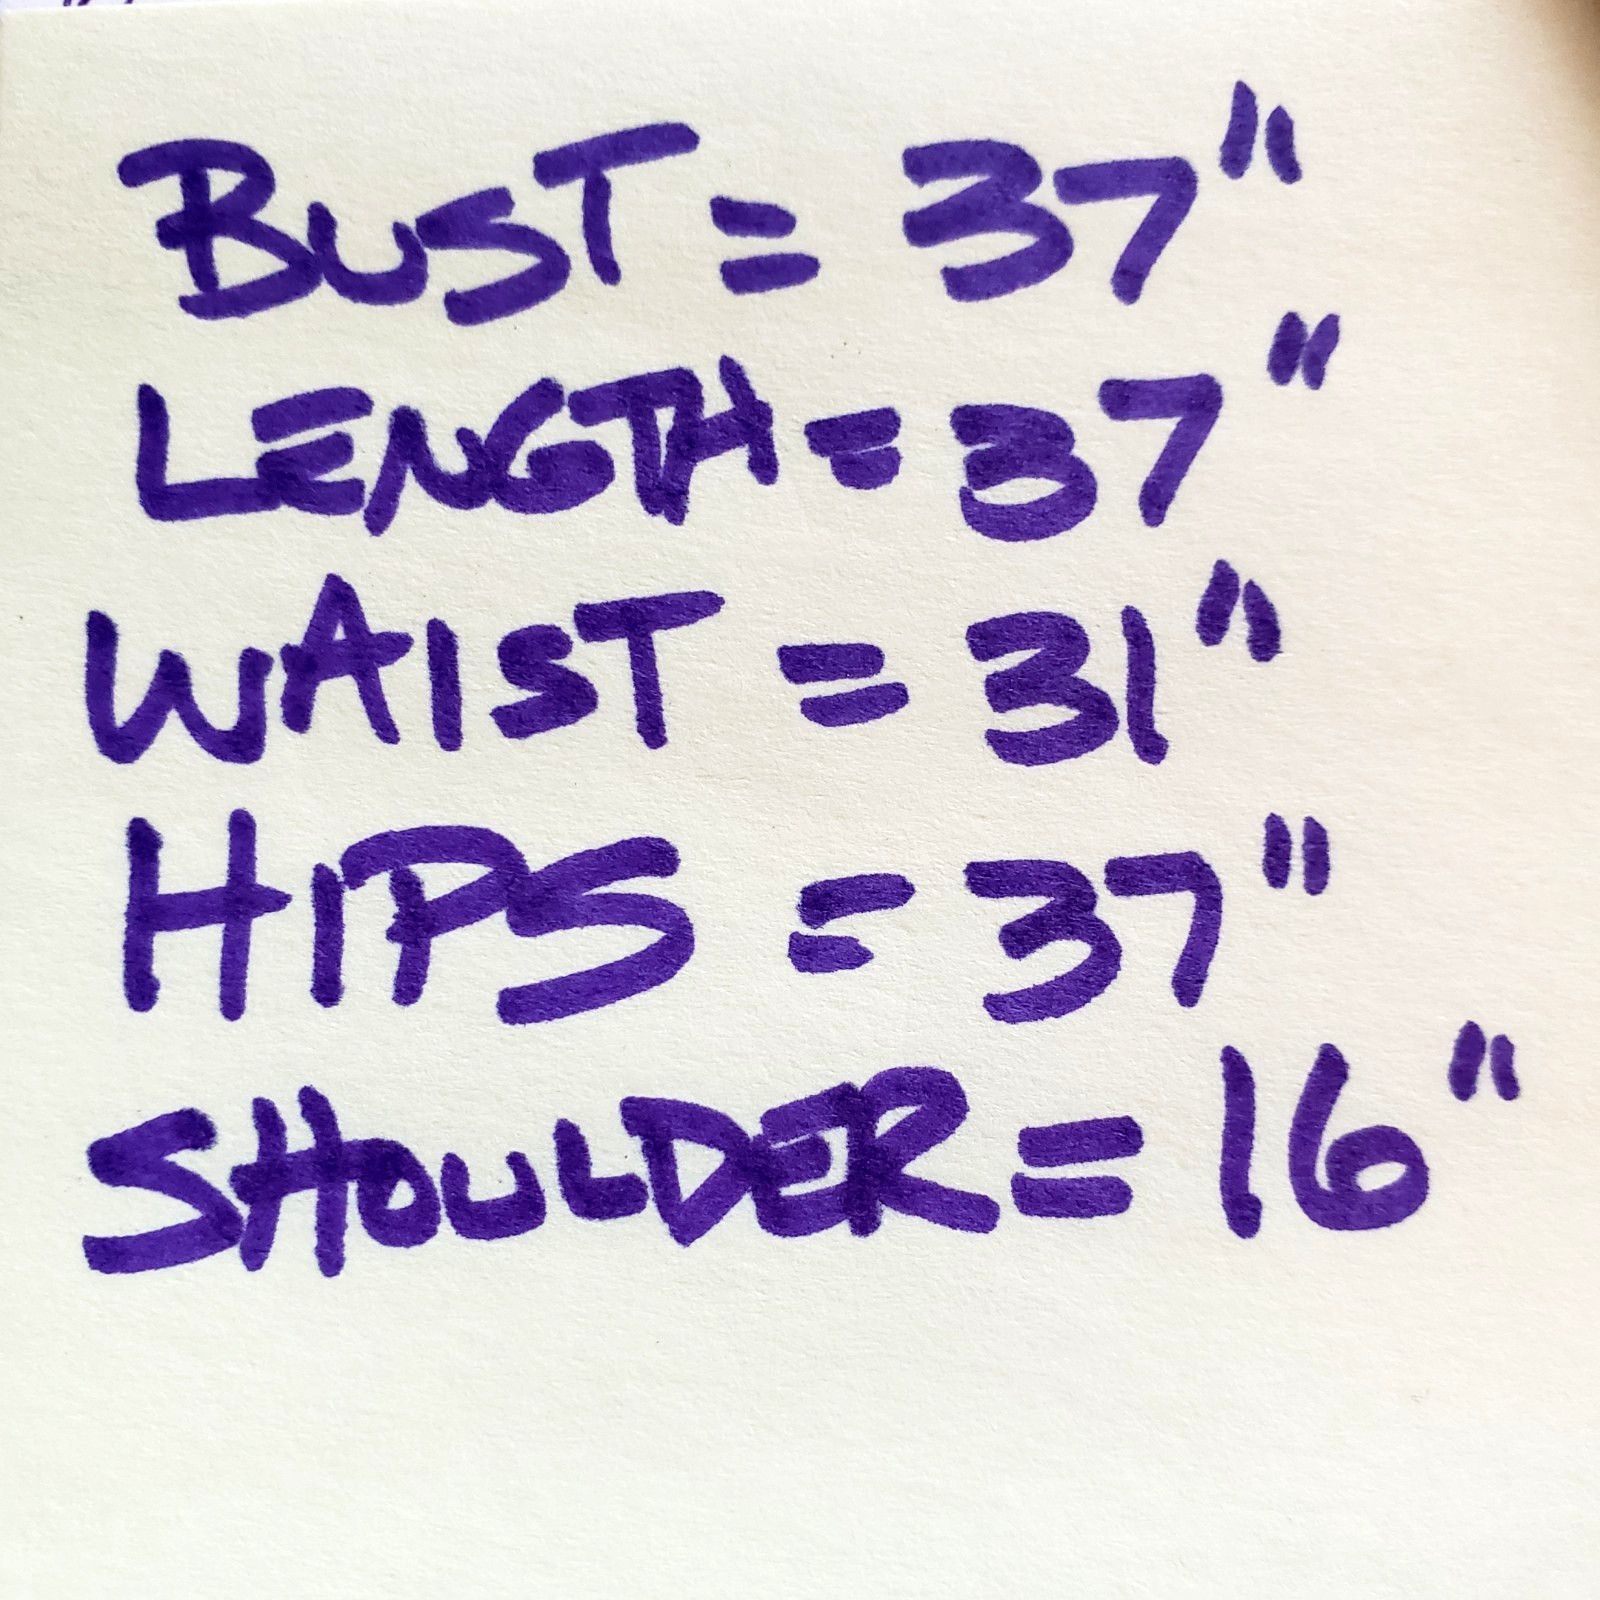 BUST = 37"
LENGTH = 37"
WAIST = 31"
HIPS = 37"
SHOULDER = 16"